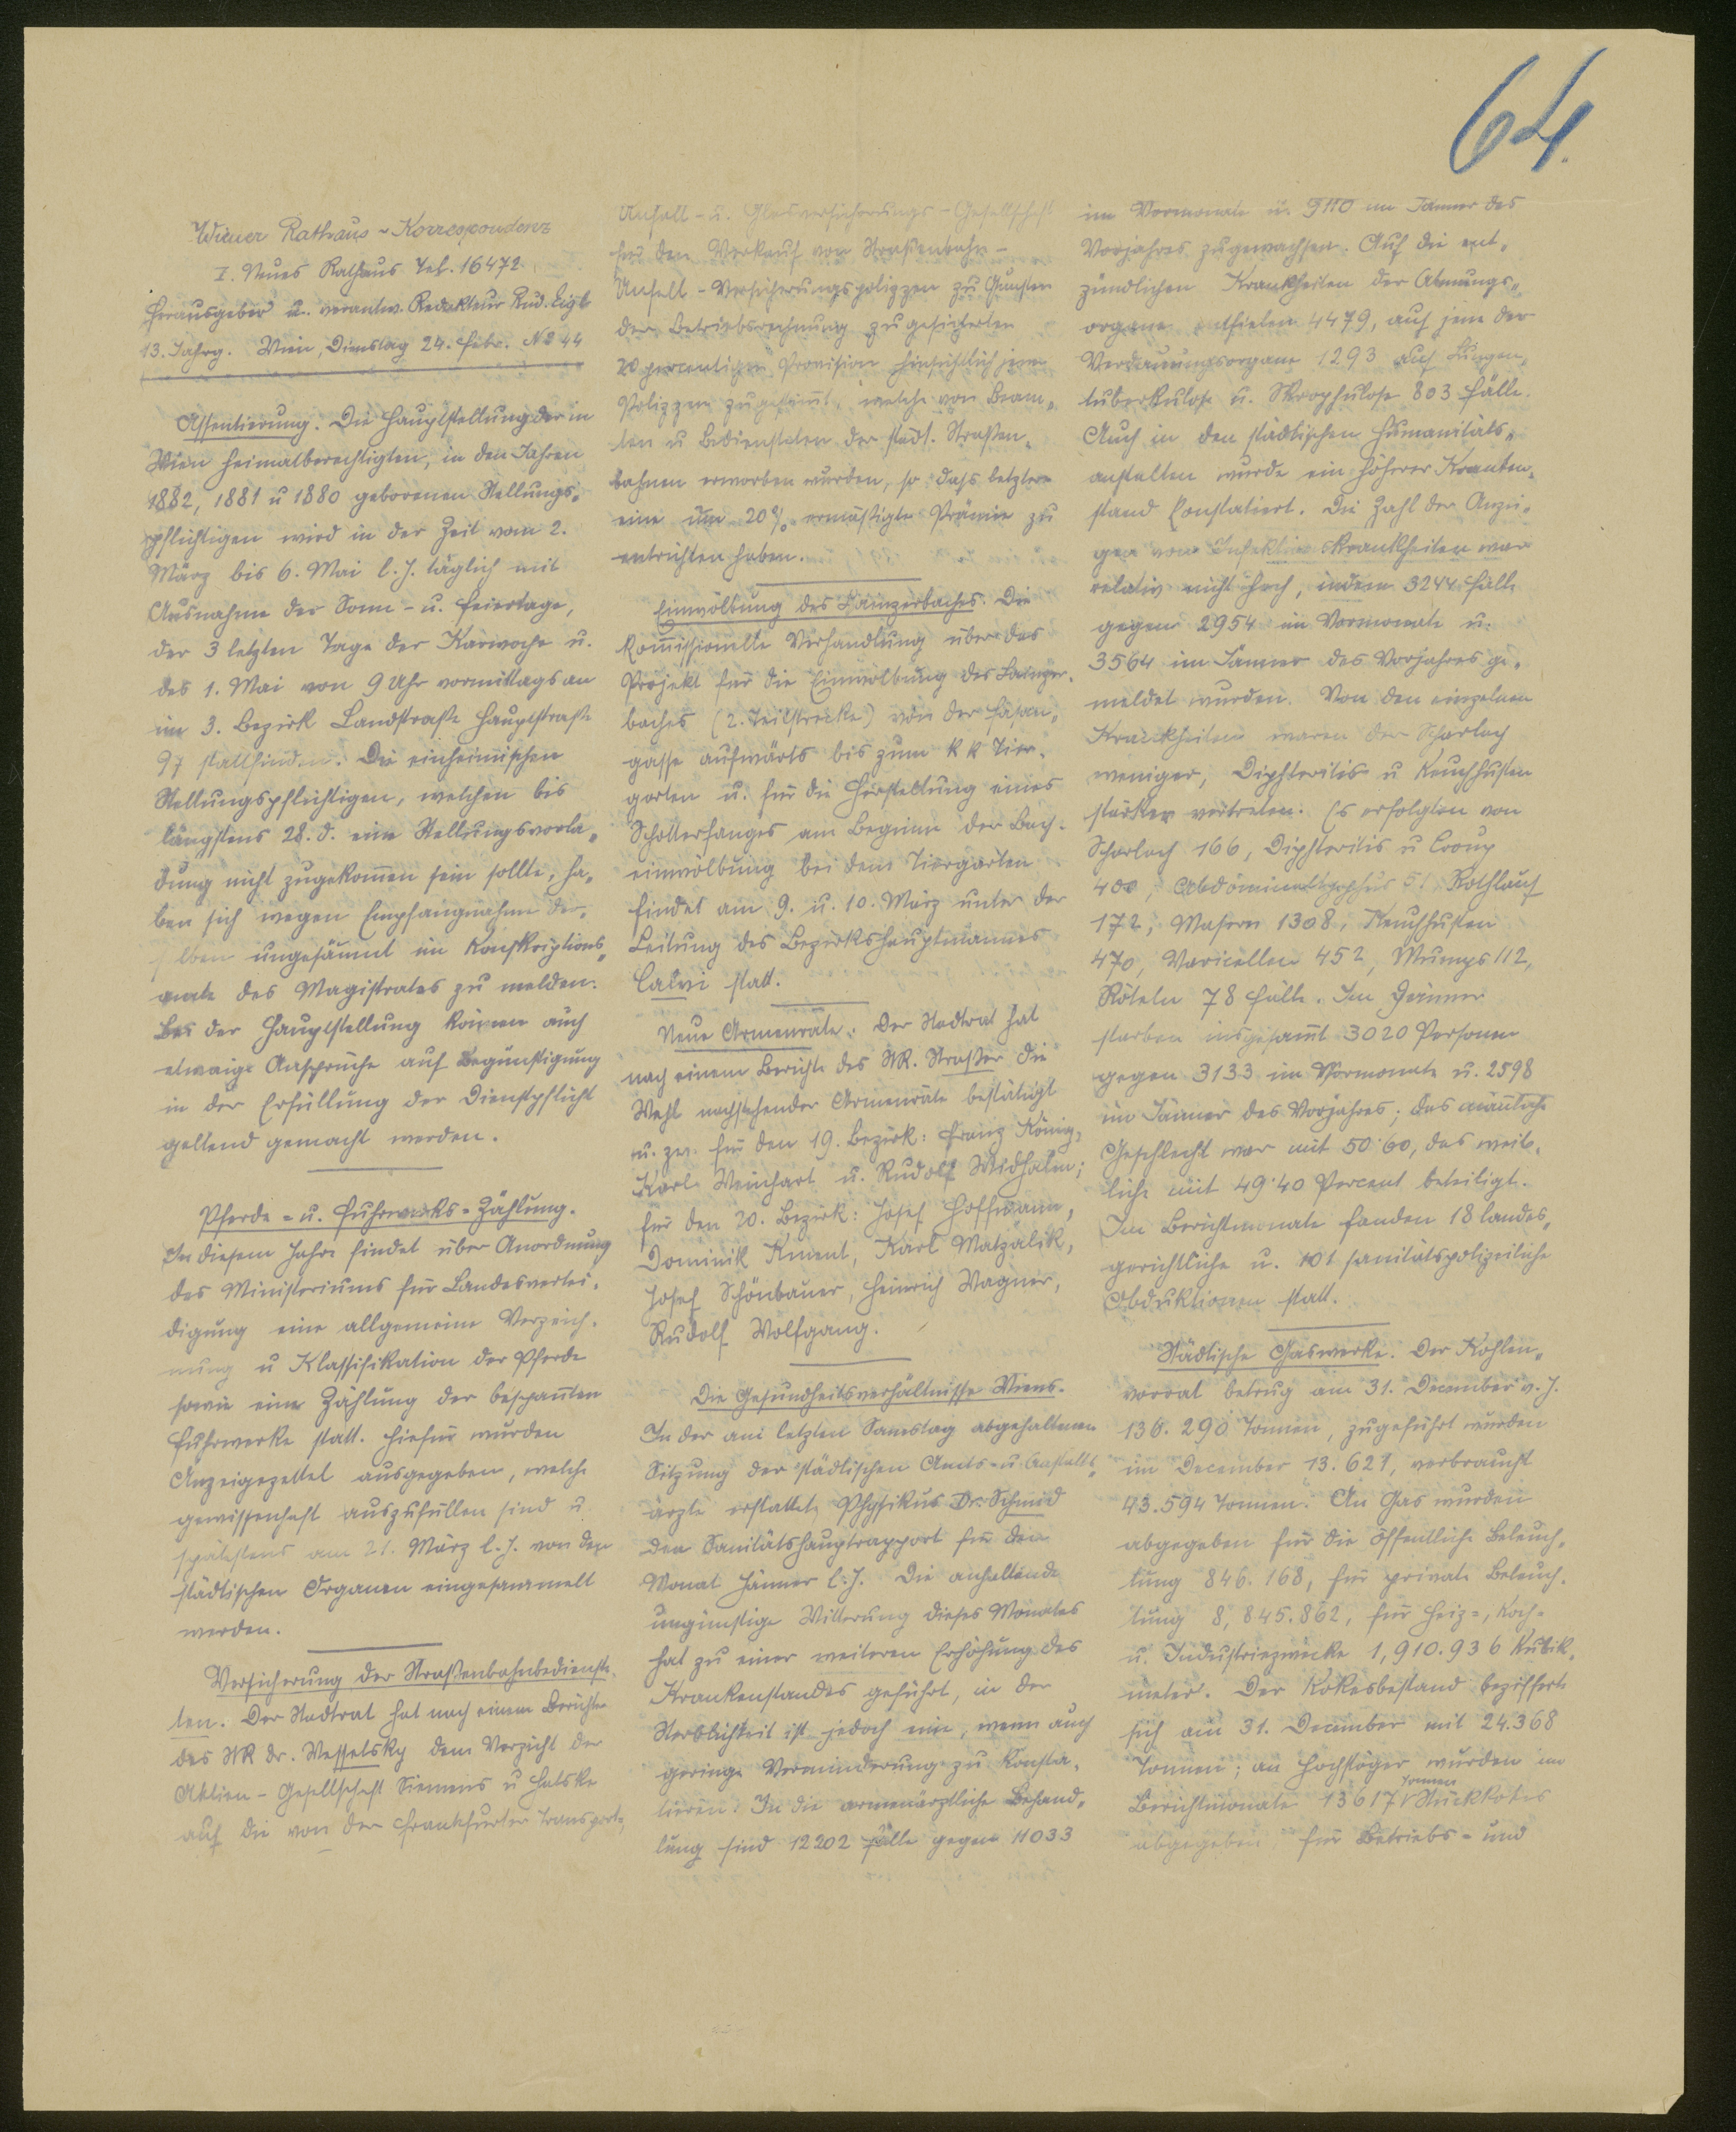 64.
Wiener Rathaus-Korrespondenz
I. Neues Rathaus Tel. 16472
Herausgeber u. verantw. Redakteur Rud. Eigl
13. Jahrg. Wien, Dienstag 24. Febr. No 44
Assentierung. Die Hauptstellung der in
Wien heimatberechtigten, in den Jahren
1882, 1881 u 1880 geborenen Stellungs-
pflichtigen wird in der Zeit vom 2.
März bis 6. Mai l. J. täglich mit
Ausnahme der Sonn- u. Feiertage,
der 3 letzten Tage der Karwoche u.
des 1. Mai von 9 Uhr vormittags an
im 3. Bezirk Landstraße Hauptstraße
97 stattfinden. Die einheimischen
Stellungspflichtigen, welchen bis
längstens 28. d. eine Stellungsvorla-
dung nicht zugekom̄en sein sollte, ha-
ben sich wegen Empfangnahme der-
selben ungesäumt im Konskriptions-
amte des Magistrates zu melden.
Bei der Hauptstellung können auch
etwaige Ansprüche auf Begünstigung
in der Erfüllung der Dienstpflicht
geltend gemacht werden.
Pferde- u. Fuhrwerks-Zählung.
In diesem Jahre findet über Anordnung
des Ministeriums für Landesvertei-
digung eine allgemeine Verzeich-
nung u Klassifikation der Pferde
sowie eine Zählung der bespan̄ten
Fuhrwerke statt. Hiefür wurden
Anzeigezettel ausgegeben, welche
gewissenhaft auszufüllen sind u.
spätestens am 21. März l. J. von den
städtischen Organen eingesammelt
werden.
Versicherung der Straßenbahnbedienste-
ten. Der Stadtrat hat nach einem Berichte
des StR Dr. Wesselsky dem Verzicht der
Aktien-Gesellschaft Siemens u Halske
auf die von der Frankfurter Transport-
Unfall- u. Glasversicherungs-Gesellschaft
für den Verkauf von Straßenbahn-
Unfall-Versicherungspolizzen zu Gunsten
der Betriebsrechnung zugesicherten
20 percentigen Provision hinsichtlich jener
Polizzen zugestim̄t, welche von Beam-
ten u Bediensteten der städt. Straßen-
bahnen erworben wurden, so daß letztere
eine um 20% ermäßigte Prämie zu
entrichten haben.
Einwölbung des Lainzerbaches. Die
kom̄issionelle Verhandlung über das
Projekt für die Einwölbung des Lainzer-
baches (2. Teilstrecke) von der Fasan-
gasse aufwärts bis zum k k Tier-
garten u. für die Herstellung eines
Schotterfanges am Beginne der Bach-
einwölbung bei dem Tiergarten
findet am 9. u. 10. März unter der
Leitung des Bezirkshauptmannes
Calvi statt.
Neue Armenräte. Der Stadtrat hat
nach einem Berichte des StR. Straßer die
Wahl nachstehender Armenräte bestätigt
u. zw. für den 19. Bezirk: Franz König,
Karl Weinhart u. Rudolf Widhalm;
für den 20. Bezirk: Josef Hoffmann,
Dominik Kment, Karl Matzalik,
Josef Schönbauer, Heinrich Wagner,
Rudolf Wolfgang.
Die Gesundheitsverhältnisse Wiens.
In der am letzten Samstag abgehaltenen
Sitzung der städtischen Amts- u Anstalts-
ärzte erstattete Physikus Dr. Schmid
den Sanitätshauptrapport für den
Monat Jänner l. J. Die anhaltende
ungünstige Witterung dieses Monates
hat zu einer weiteren Erhöhung des
Krankenstandes geführt, in der
Sterblichkeit ist jedoch eine, wenn auch
geringe Verminderung zu konsta-
tieren. In die armenärztliche Behand-
lung sind 12202 Fälle gegen 11033
im Vormonate u. 9110 im Jänner des
Vorjahres zugewachsen. Auf die ent-
zündlichen Krankheiten der Atmungs-
organe entfielen 4479, auf jene der
Verdauungsorgane 1293 auf Lungen-
tuberkulose u. Skrophulose 803 Fälle.
Auch in den städtischen Humanitäts-
anstalten wurde ein höherer Kranken-
stand konstatiert. Die Zahl der Anzei-
gen von Infektionskrankheiten war
relativ nicht hoch, indem 3244 Fälle
gegen 2954 im Vormonate u.
3564 im Jänner des Vorjahres ge-
meldet wurden. Von den einzelnen
Krankheiten waren der Scharlach
weniger, Diphteritis u Keuchhusten
stärker vertreten. Es erfolgten von
Scharlach 166, Diphteritis u Croup
400, Abdominaltyphus 51 Rothlauf
172, Masern 1308, Keuchhusten
470, Varicellen 452, Mumps 112,
Röteln 78 Fälle. Im Jänner
starben insgesam̄t 3020 Personen
gegen 3133 im Vormonate u. 2598
im Jänner des Vorjahres; das män̄liche
Geschlecht war mit 50·60, das weib-
liche mit 49·40 Percent beteiligt.
Im Berichtmonate fanden 18 landes-
gerichtliche u. 101 sanitätspolizeiliche
Obduktionen statt.
Städtische Gaswerke. Der Kohlen-
vorrat betrug am 31. December v. J.
136.290 Tonnen, zugeführt wurden
im December 13.621, verbraucht
43.594 Tonnen. An Gas wurden
abgegeben für die öffentliche Beleuch-
tung 846.168, für private Beleuch-
tung 8,845.862, für Heiz-, Koch-
u. Industriezwecke 1,910.936 Kubik-
meter. Der Kokesbestand beziffert
sich am 31. December mit 24.368
Tonnen; an Hochstöger wurden im
Berichtmonate 13617 Tonnen Stückkokes
abgegeben, für Betriebs- und